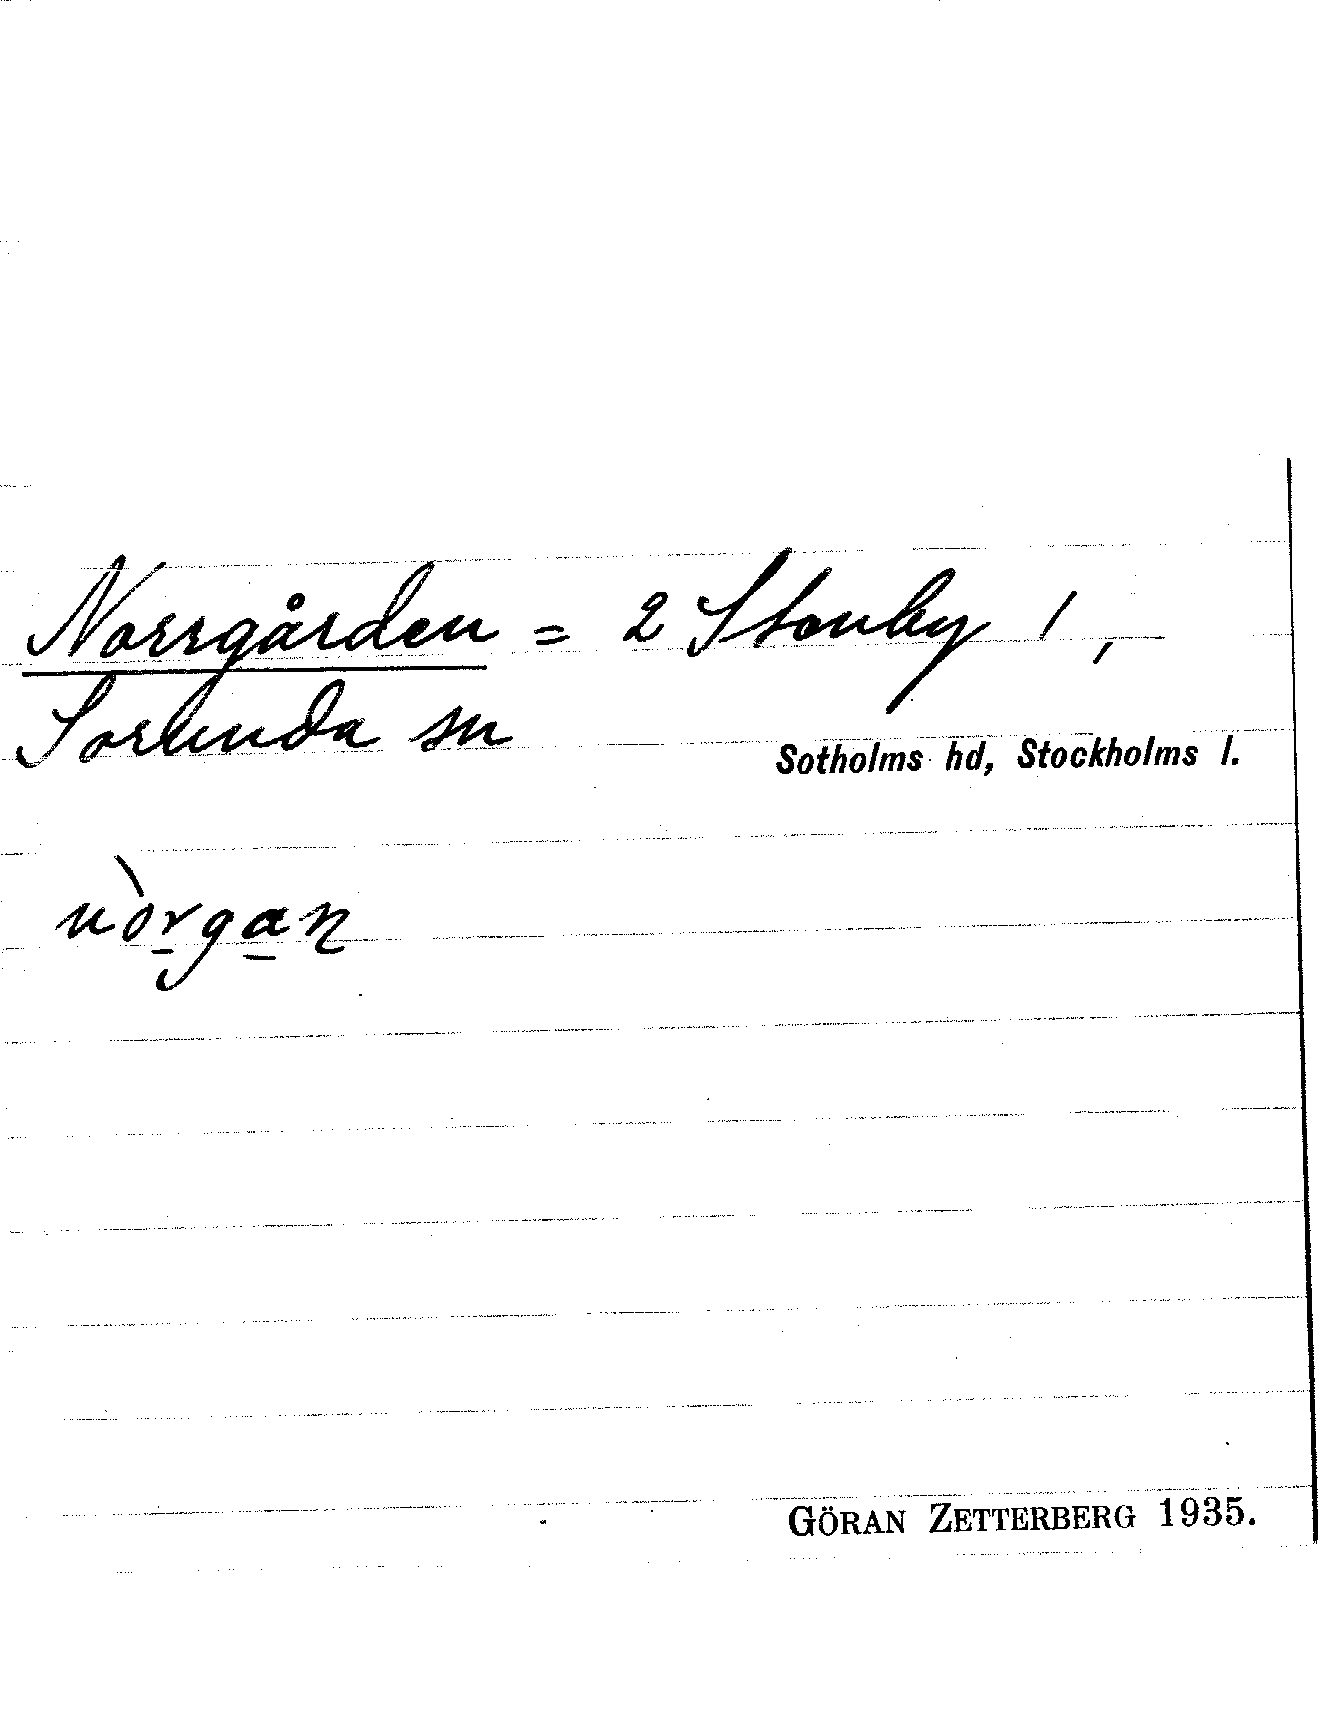 Norrgården = 2 Stenby 1,
Sorunda sn
Sotholms hd, Stockholms l.
nòrgan
GÖRAN ZETTERBERG 1935.